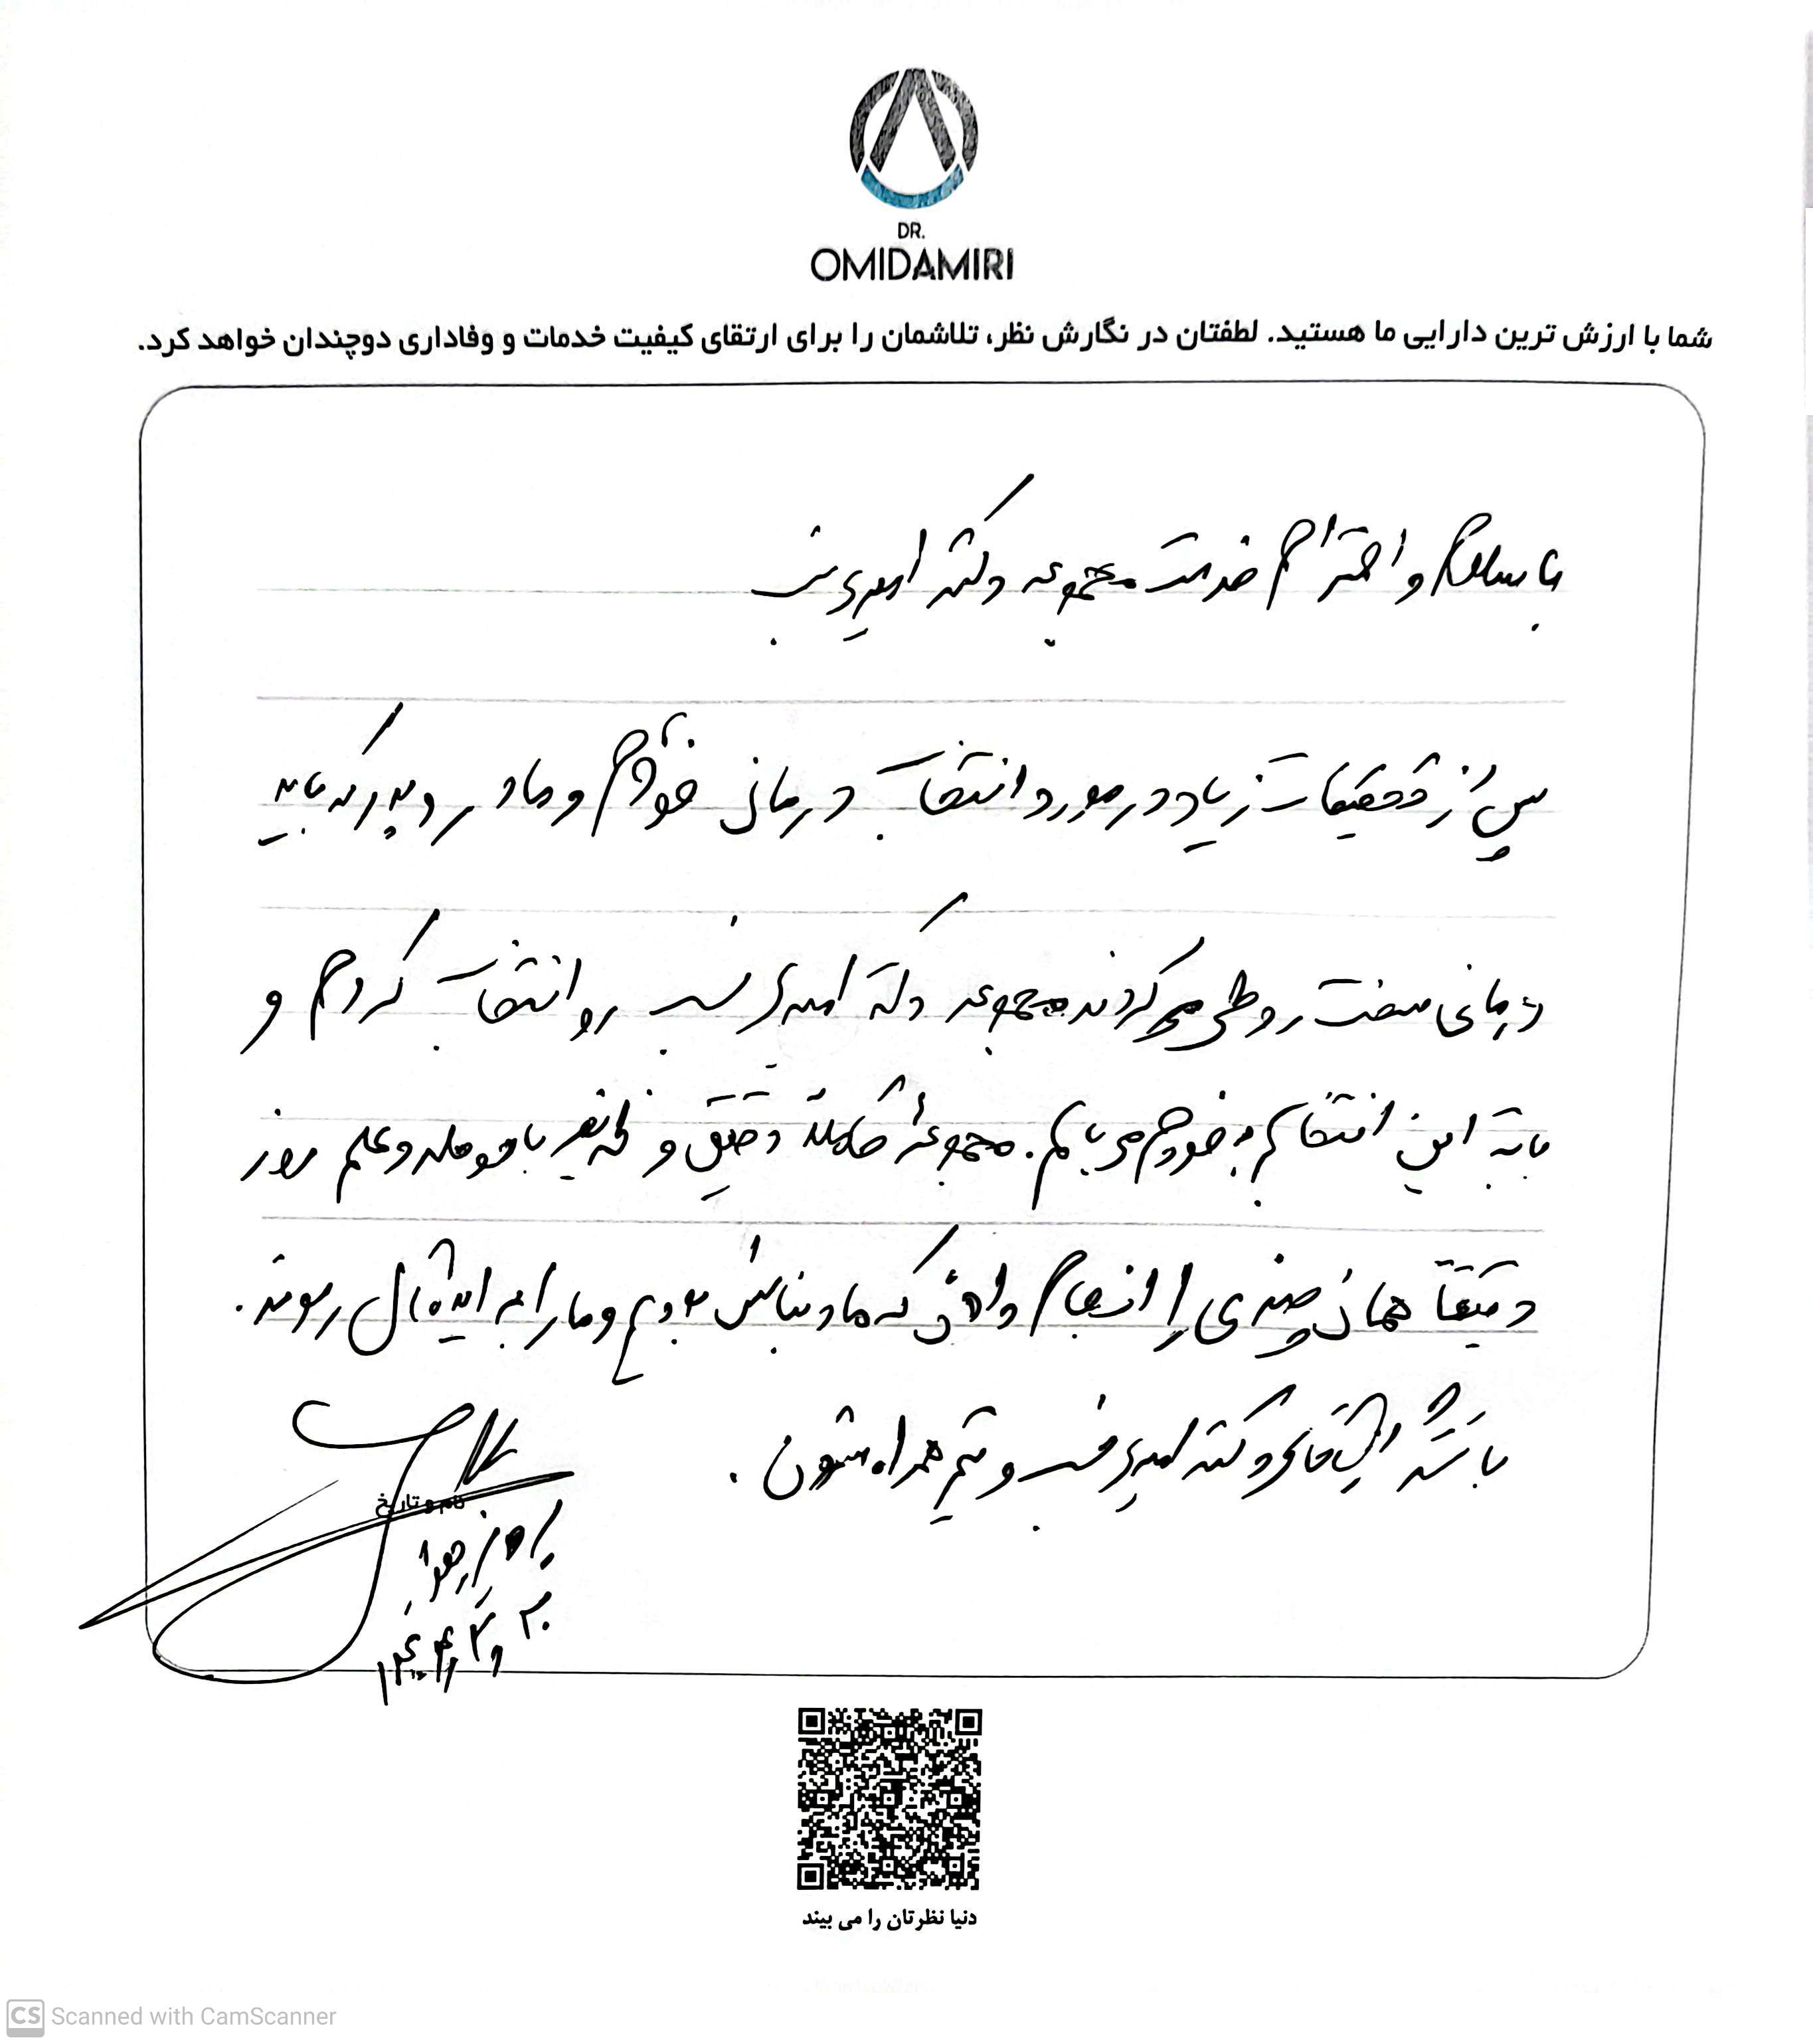 DR.
OMIDAMIRI
شما با ارزش ترین دارایی ما هستید. لطفتان در نگارش نظر، تلاشمان را برای ارتقای کیفیت خدمات و وفاداری دوچندان خواهد کرد.
با سلام و احترام خدمت مجموعه دکتر امیری نسب
پس از تحقیقات زیاد در مورد انتخاب درمانی خودم و مادر و پدر که باید
درمانی سخت رو طی می کردند مجموعه دکتر امیری نسب رو انتخاب کردم و
بابت این انتخابم به خودم می بالم. مجموعه کاملا دقیق و با حوصله و علم روز
دقیقا همان چیزی را انجام دادن که ما دنبالش بودیم و ما را به ایده آل رسوندند.
با تشکر از آقای دکتر امیری نسب و تیم همراه شون.
نام و تاریخ
دنیا نظرتان را می بیند
CS Scanned with CamScanner